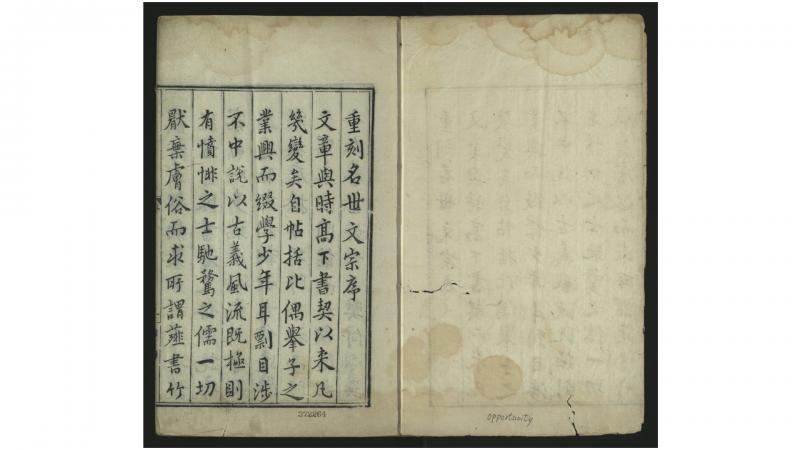 重刻名世文宗序
文章與時髙下書契以来凡
幾變矣自帖括比偶舉子之
業興而綴學少年耳剽目涉
不中說以古義風流既極則
有憤悱之士馳騖之儒一切
厭棄膚俗而求所謂蕝書竹
372264
opportunity